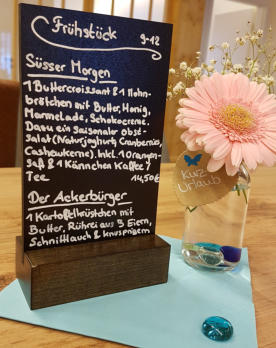 Frühstück 9-12
Süsser Morgen
1 Buttercroissant & 1 Mohn-
brötchen mit Butter, Honig,
Marmelade, Schokocreme.
Dazu ein saisonaler Obst-
salat (Naturjoghurt, Cranberries,
Cashewkerne). Inkl. 1 Orangen-
saft & 1 Kännchen Kaffee /
Tee 14,50€
Der Ackerbürger
1 Kartoffelkrüstchen mit
Butter, Rührei aus 3 Eiern,
Schnittlauch & knusprigem
Kurz
Urlaub